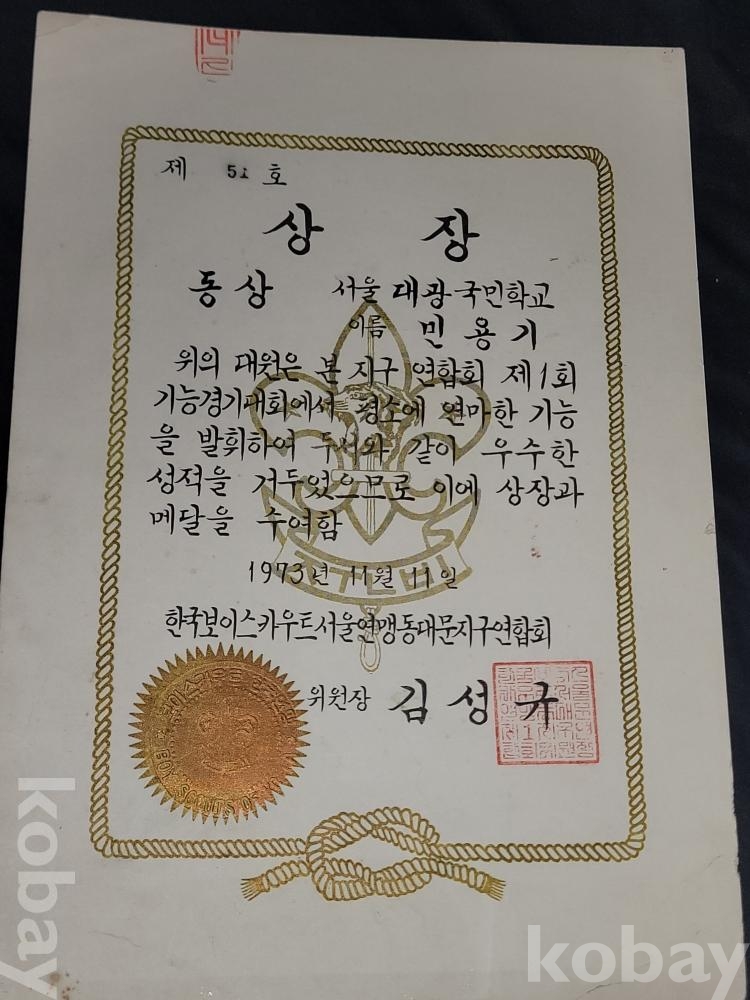 제 51 호
상 장
동상 서울 대광국민학교
이름 민용기
위의 대원은 본 지구 연합회 제1회
기능경기대회에서 평소에 연마한 기능
을 발휘하여 두서와 같이 우수한
성적을 거두었으므로 이에 상장과
메달을 수여함
준비
1973년 11월 11일
한국보이스카우트서울연맹동대문지구연합회
위원장 김성규
SCOUTS OF
kobay
kobay